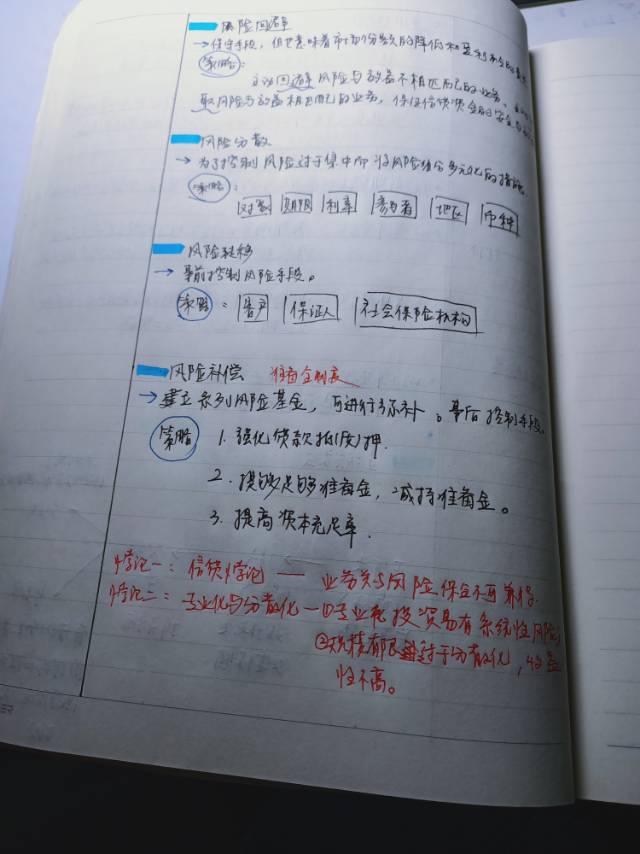 风险回避
→保守手段，但也意味着市场份额的降低和
策略：
主动回避风险与效益不相匹配的业务。
取风险与效益相匹配的业务，保证信贷资金的安全
风险分散
→为了控制风险过于集中而将风险组合多元化的措施
策略：
对象 期限 利率 参与者 地区 币种
风险转移
→事前控制风险手段。
策略：客户 保证人 社会保险机构
风险补偿 准备金制度
→建立系列风险基金，可进行弥补。事后控制手段。
策略 1. 强化贷款抵(质)押.
2. 提够足够准备金，减持准备金。
3. 提高资本充足率.
悖论一：信贷悖论 —— 业务关与风险保全不可兼得.
悖论二：专业化与分散化 — ①专业化投资易有系统性风险
过于分散化，收益
性不高。